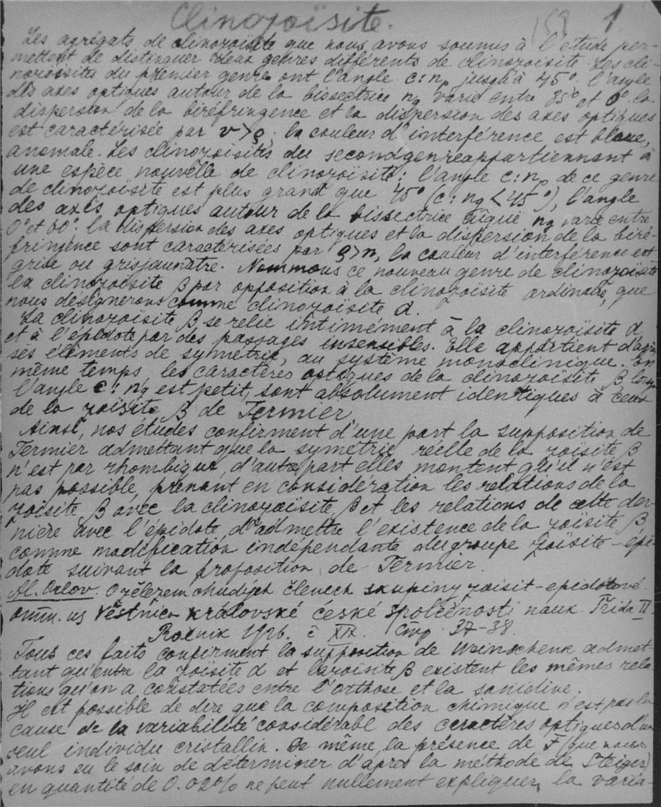 Clinozoïsite.
153 1
Les agrégats de clinozoisite que nous avons soumis à l'étude per-
mettent de distinguer deux genres différents de clinozoisite. Les cli-
nozoisites du premier genre ont l'angle c:ng jusqu'à 45°. l'angle
des axes optiques autour de la bissectrice ng varie entre 85° et 0° la
dispersion de la biréfringence et la dispersion des axes optiques
est caractérisée par v>ρ. la couleur d'interférence est bleue,
anomale. Les clinozoisites du second genre appartiennent à
une espèce nouvelle de clinozoisite: l'angle c:ng de ce genre
de clinozoisite est plus grand que 45° (c:ng<45°), l'angle
des axes optiques autour de la bissectrice aiguë ng varie entre
0° et 60°. la dispersion des axes optiques et la dispersion de la biré-
fringence sont caractérisées par ρ>v, la couleur d'interférence est
grise ou grisjaunâtre. Nommons ce nouveau genre de clinozoisite
la clinozoisite β par opposition à la clinozoïsite ordinaire, que
nous désignerons comme clinozoïsite α.
La clinozoïsite β se relie intimément à la clinozoïsite α
et à l'épidote par des passages insensibles. Elle appartient d'après
ses éléments de symétrie, au système monoclinique. En
même temps les caractères optiques de la clinozoïsite β,
l'angle c:ng est petit, sont absolument identiques à ceux
de la zoïsite β de Termier.
Ainsi, nos études confirment d'une part la supposition de
Termier admettant que la symétrie réelle de la zoïsite β
n'est par rhombique, d'autre part elles montent qu'il n'est
pas possible, prenant en considération les relations de la
zoïsite β avec la clinozoïsite β et les relations de cette der-
nière avec l'épidote d'admettre l'existence de la zoïsite β
comme modification independante du groupe zoïsite-épi-
dote suivant la proposition de Termier.
Al. Orlov. O členech skupiny zoisit-epidotové.
Věstnik Kralovské české společnosti nauk Trida II
Ročnik 1926. č XIX. 37-38.
Tous ces faits confirment la supposition de Weinschenk admet-
tant qu'entre la zoïsite α et la zoïsite β existent les mêmes rela-
tions qu'on a constatées entre l'orthose et la sanidine.
Il est possible de dire que la composition chimique n'est pas la
cause de la variabilité considérable des caractères optiques d'un
seul individu cristallin. De même la présence de F (que nous
avons eu le soin de determiner d'après la méthode de Steiger)
en quantité de 0.02% ne peut nullement expliquer la varia-